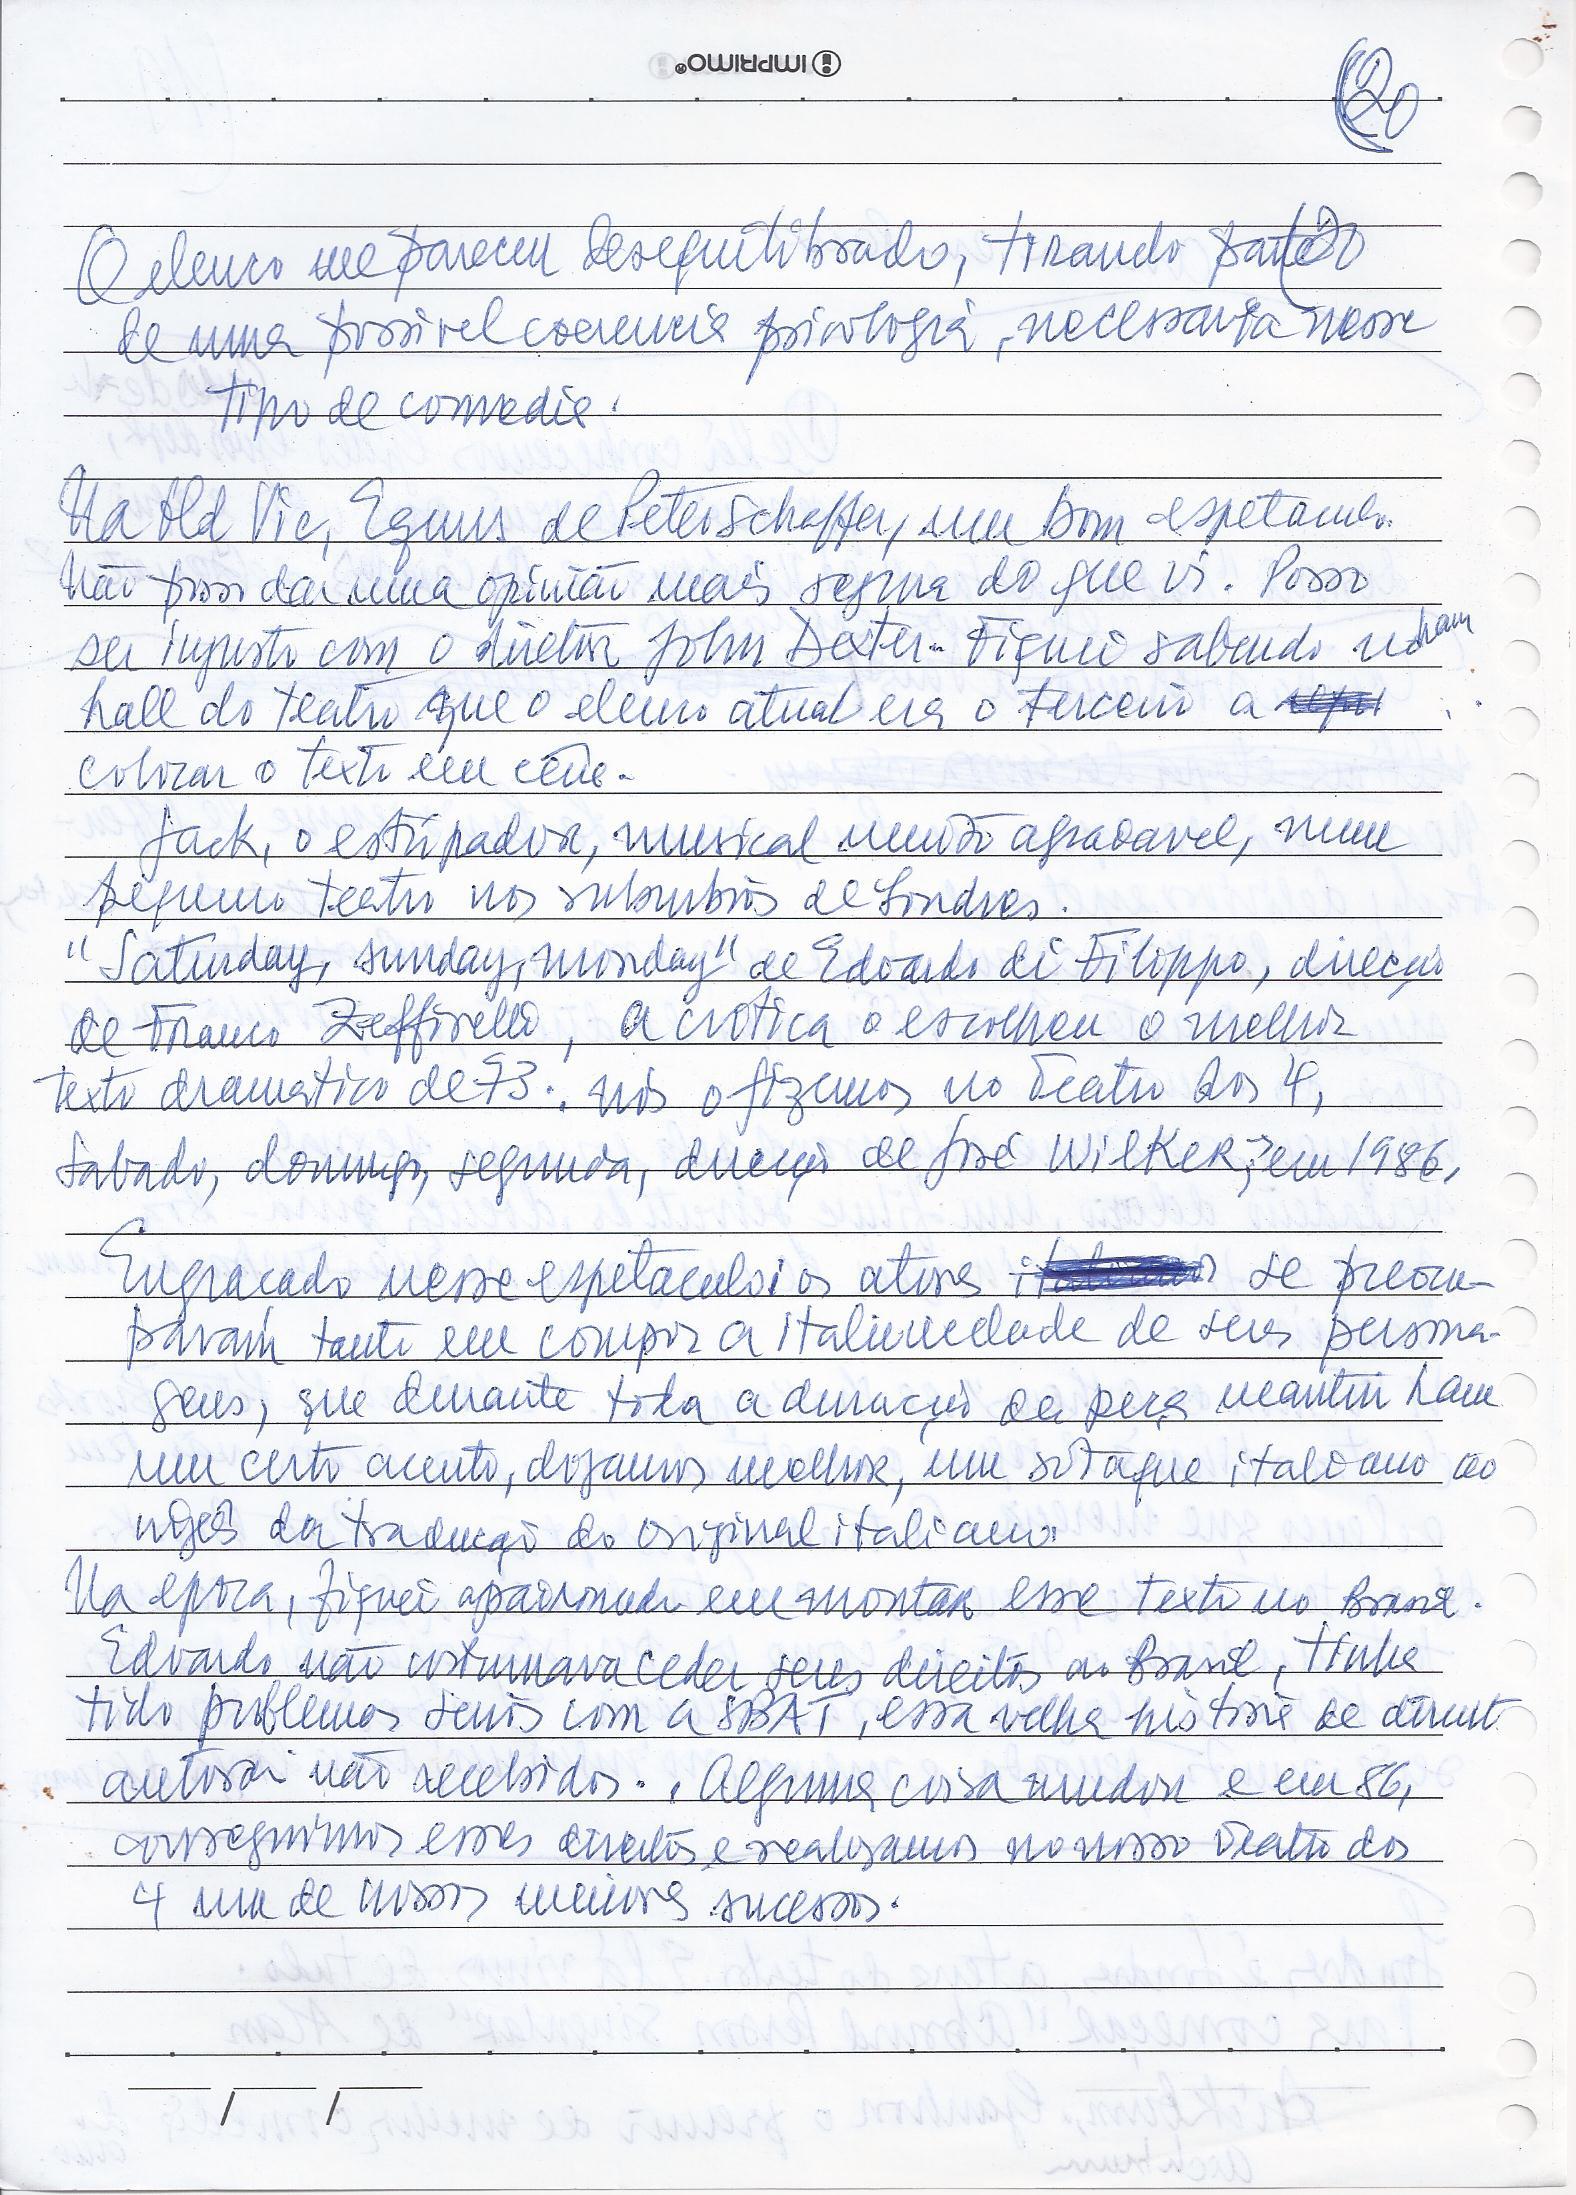 IMPRIMO®
20
O elenco me pareceu desequilibrado, tirando partido
de uma possivel coerencia psicologia, necessaria nesse
tipo de comedia.
Na Old Vic, Equus de Peter Schaffer, um bom espetaculo.
Não posso dar uma opinião mais segura do que vi. Posso
ser injusto com o diretor John Dexter. Fiquei sabendo no
hall do teatro que o elenco atual era o terceiro a
colocar o texto em cena.
Jack, o estripador, musical muito agradavel, num
pequeno teatro nos suburbios de Londres.
"Saturday, sunday, monday" de Edoardo di Filoppo, direção
de Franco Zeffirelli, a critica o escolheu o melhor
texto dramatico de 73. nós o fizemos no Teatro dos 4,
Sabado, domingo, segunda, direção de José WilKeR, em 1986.
Engraçado nesse espetaculo: os atores se preocu-
pavam tanto em compor a de seus persona-
gens, que durante toda a duração da peça mantinham
um certo acento, digamos melhor, um sotaque italiano ao
inglês da tradução do original italiano.
Na epoca, fiquei apaixonado em montar esse texto no Brasil.
Edoardo não costumava ceder seus direitos ao Brasil, tinha
tido problemas serios com a SBAT, essa velha historia de direito
autoral não recebidos. Alguma coisa mudou e em 86,
conseguimos esses direitos e realizamos no nosso Teatro dos
4 um de nossos maiores sucessos.